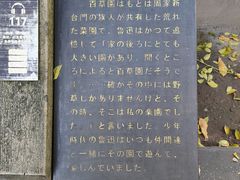 117
百草園はもとは周家新
台門の族人が共有した荒れ
た菜園で、魯迅はかつて追
憶して「家の後ろにとても
大きい園があり、聞くとこ
ろによると百草園だそうで
確かその中には野
草しかありませんけど、そ
の時、そこは私の楽園でし
た。」と言いました。少年
時代の魯迅はいつも仲間達
と一緒にその園で遊んで、
楽しんでいました。